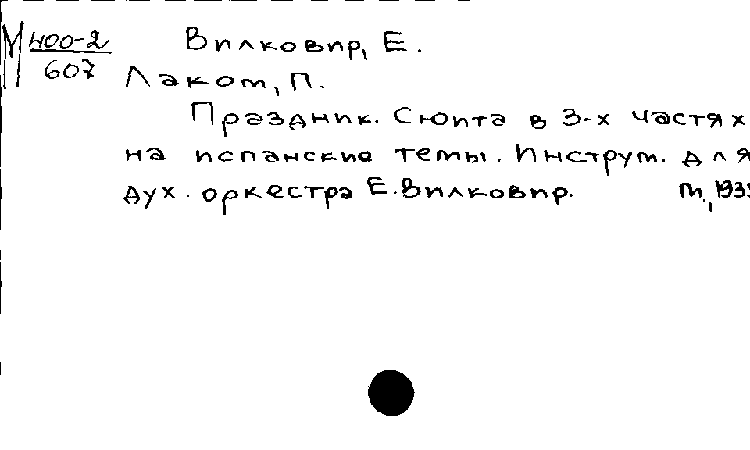 М 400-2 Вилковир, Е.
607 Лаком, П.
Праздник. Сюита в 3-х частях
на испанские темы. Инструм. для
дух. оркестра Е. Вилковир. М.,